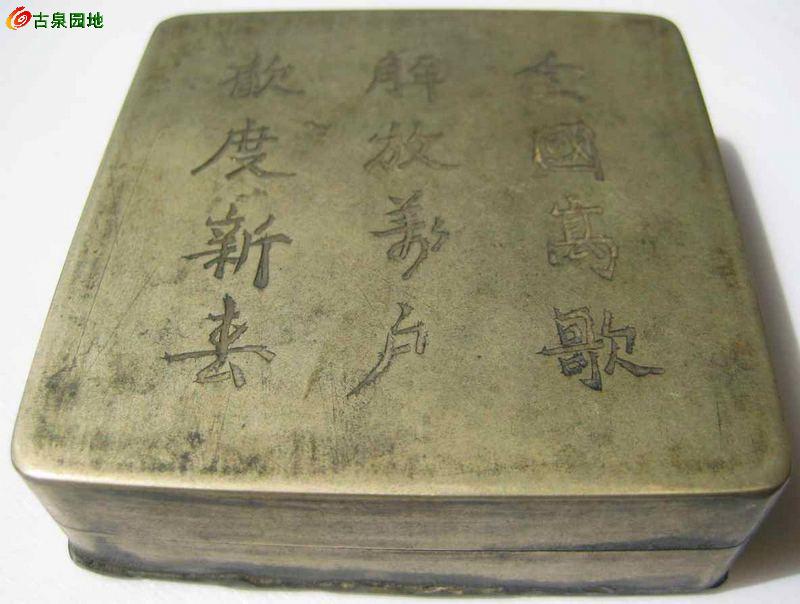 古泉园地
全國高歌
解放萬户
歡度新春